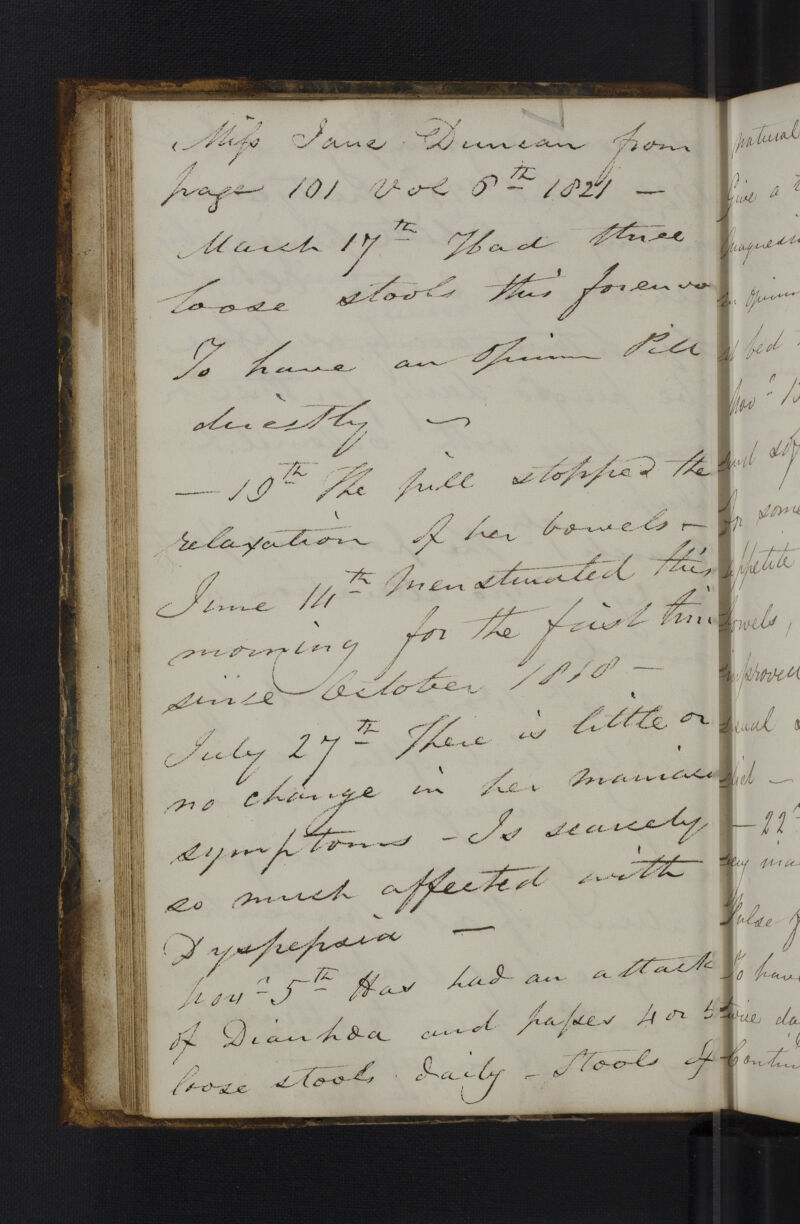 Miss Jane Duncan from
page 101 Vol 6th 1821 —
March 17th Had three
loose stools this forenoo
To have an Opium Pill
directly ~
— 19th The pill stopped the
relaxation of her bowels —
June 14th Menstruated this
morning for the first tim
since October 1818 —
July 27th There is little or
no change in her maniac
symptoms - Is scarcely
so much affected with
Dyspepsia —
Novr 5th Has had an attack
of Diarrhœa and passes 4 or 5
loose stools daily - Stools of
natural
Give a
an opium
at bed
Novr 1
and
for some
appetite
bowels,
improved
usual
— 22
Pulse
To have
twice da
Contin